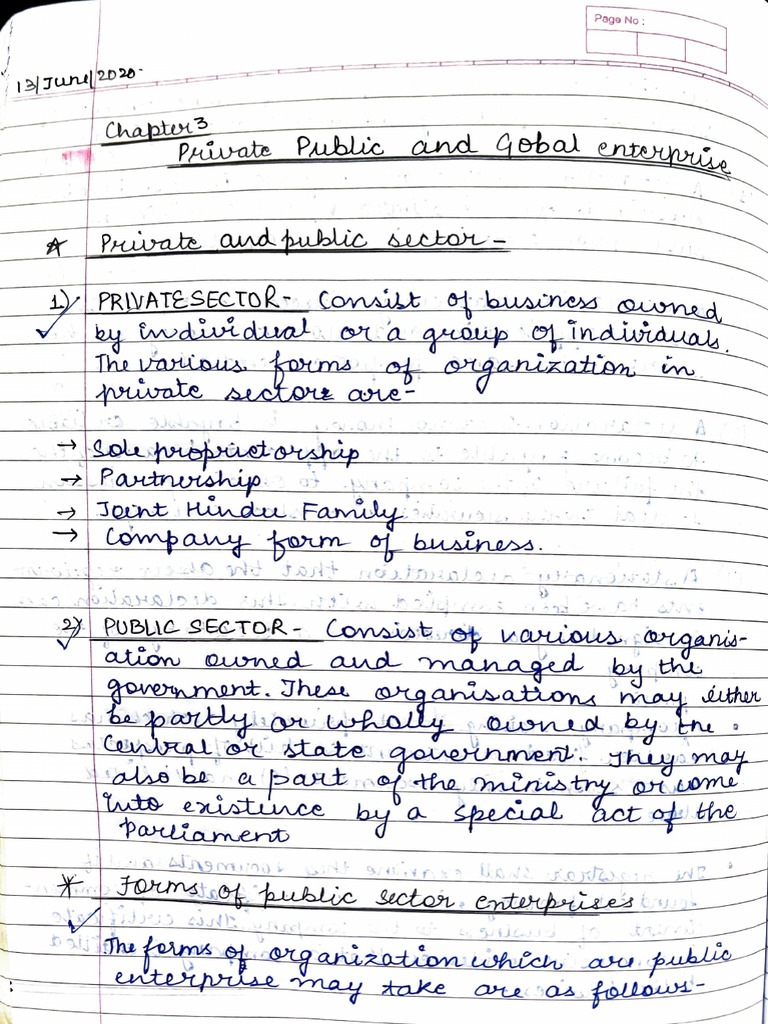 Page No :
13/June/2020.
Chapter3
Private Public and Gobal enterprise
* Private and public sector -
1.) PRIVATE SECTOR - Consist of business owned
by individual or a group of individuals.
The various forms of organization in
private sector are-
→ Sole proprietorship
→ Partnership
→ Joint Hindu Family
→ Company form of business.
2) PUBLIC SECTOR - Consist of various organis-
ation owned and managed by the
government. These organisations may either
be partly or wholly owned by the
Central or state government. They may
also be a part of the ministry or come
into existence by a special act of the
Parliament
* Forms of public sector enterprises
The forms of organization which are public
enterprise may take are as follows-